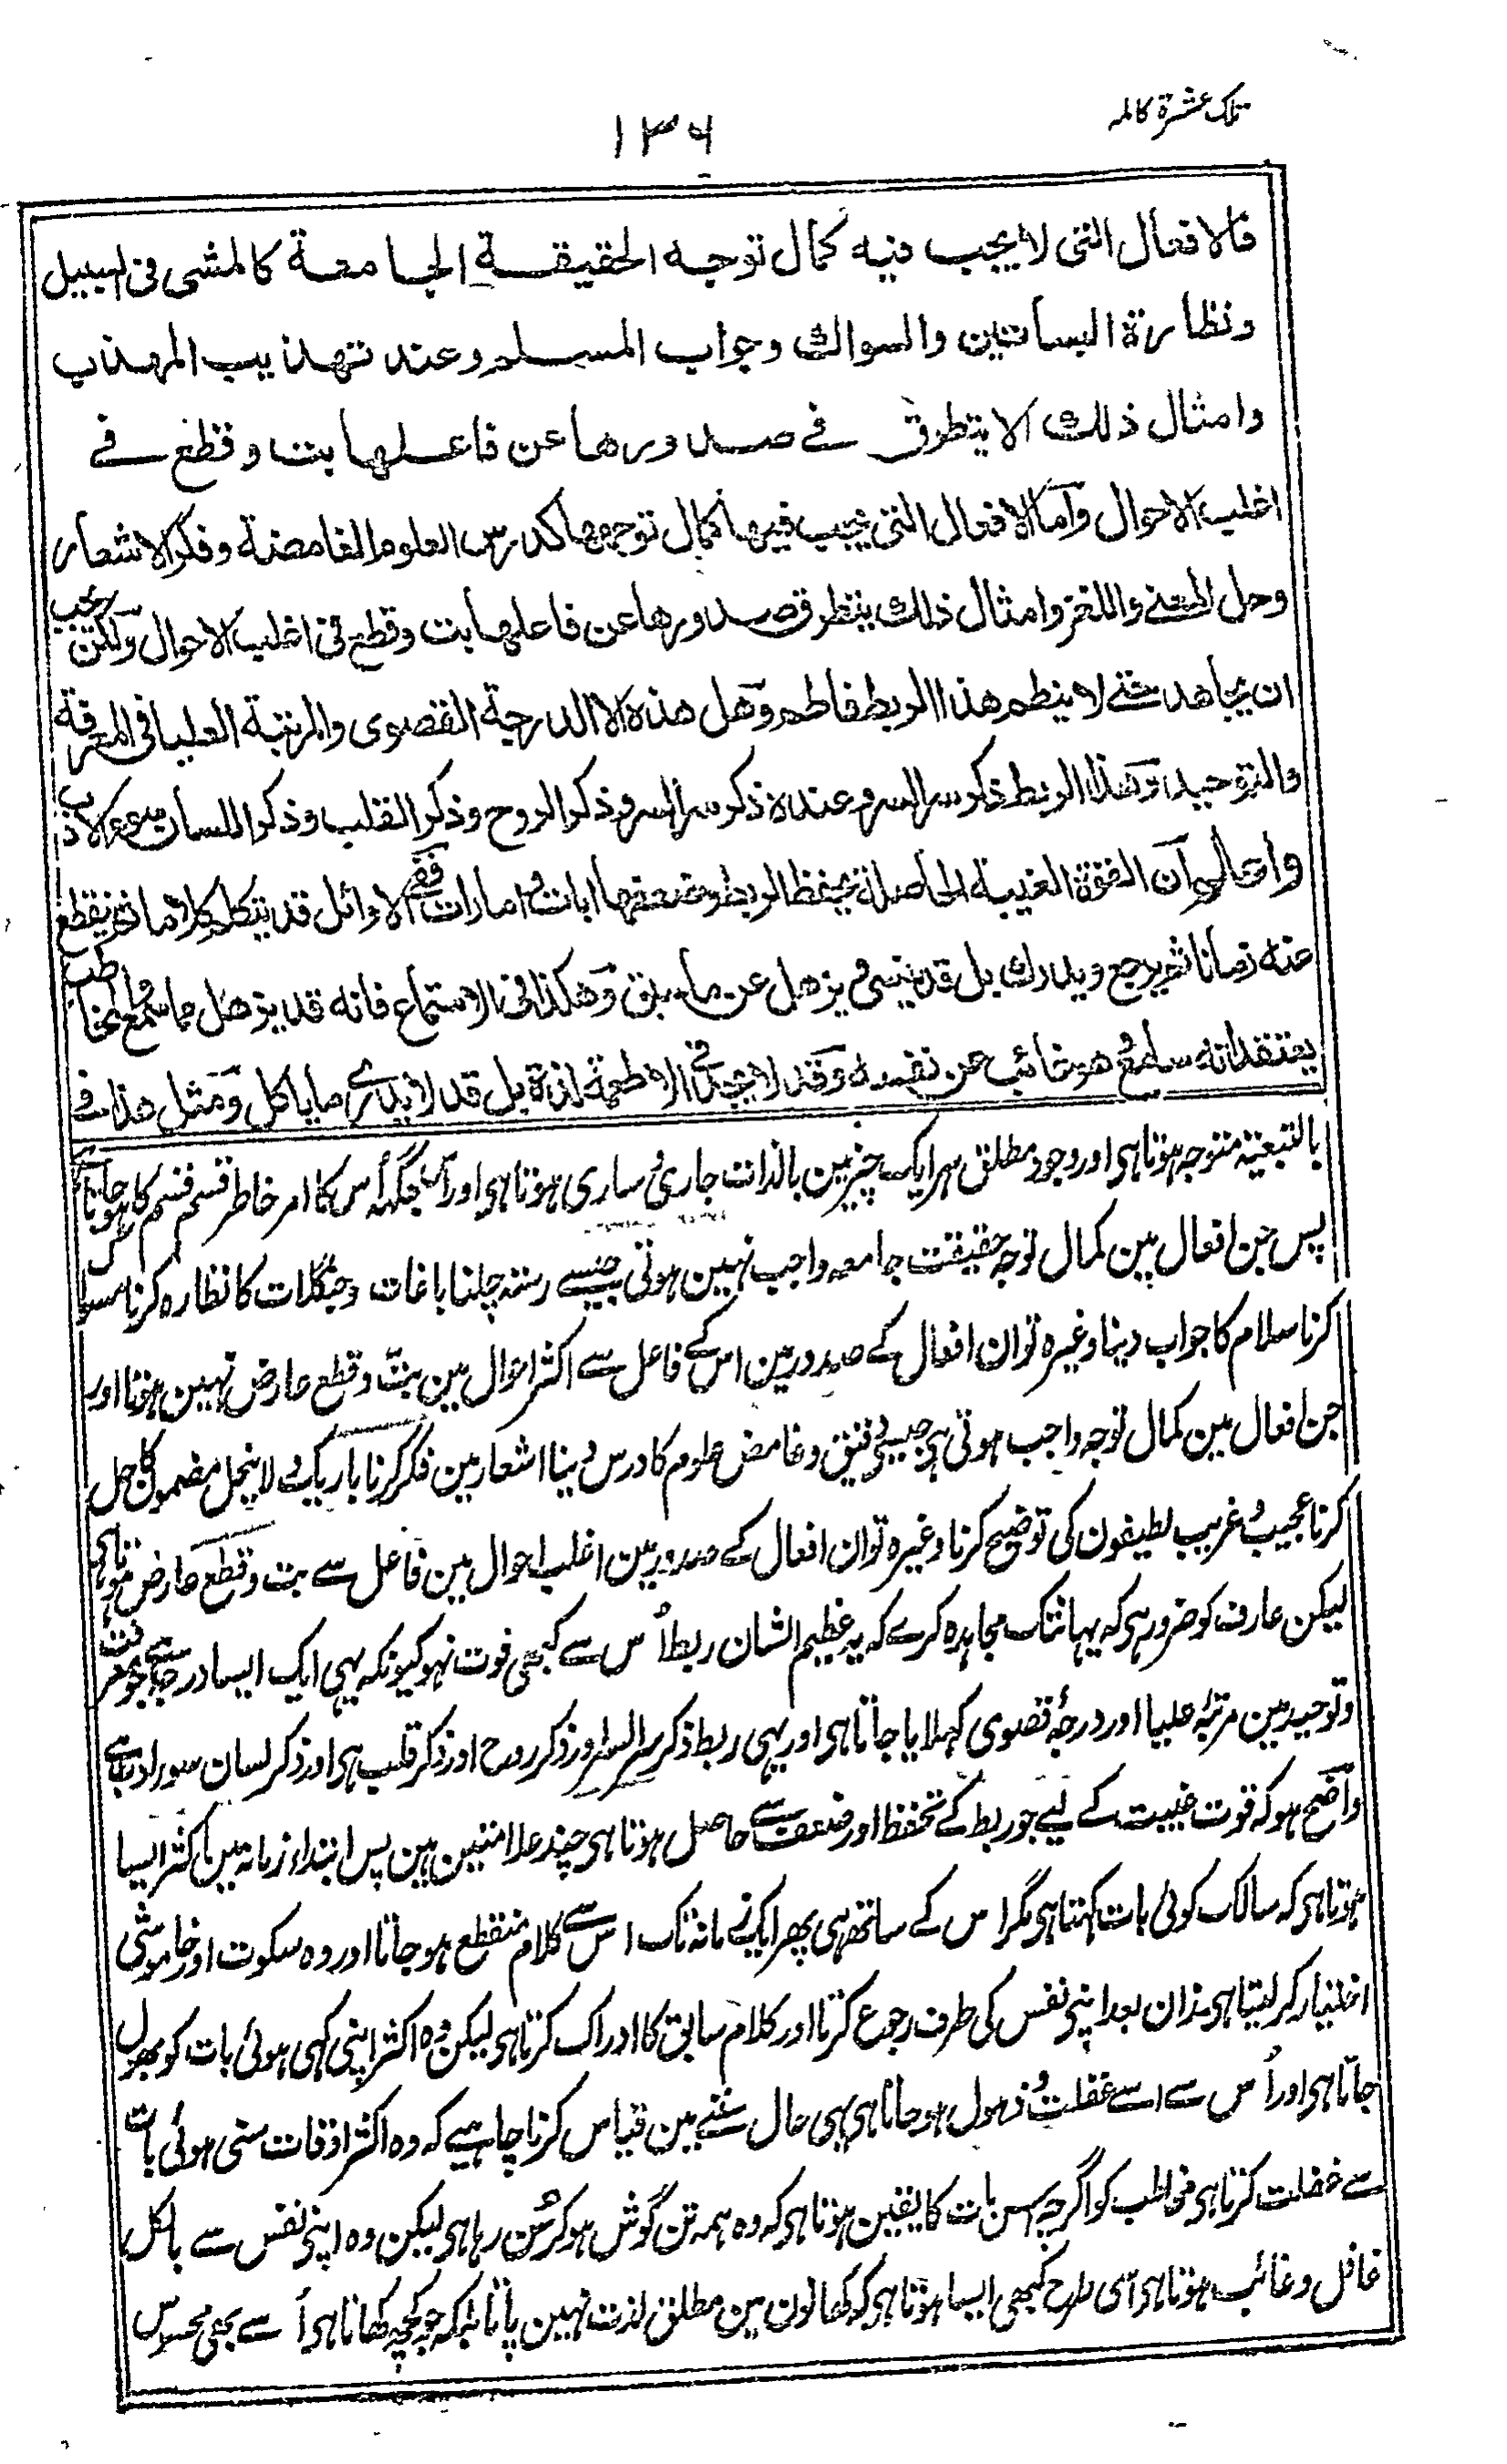 تلک عشرة کاملہ
۱۳۶
فالافعال التی لا یجب فیہ کمال توجہ الحقیقة الجامعة کالمشی فی السبیل
ونظارة البساتین والسواک وجواب المسلم وعند تہذیب المہذب
وامثال ذلک لا یتطرق فے صدورھا عن فاعلھا بت وقطع فے
اغلب الاحوال وآما الافعال التی یجب فیہا کمال توجہھا کدرس العلوم الغامضة وفکر الاشعار
وحل واللغز وامثال ذلک یتطرق صدورھا عن فاعلھا بت وقطع فی اغلب الاحوال ولکن یجب
ان یجاھد حتے لا ینطمہ ھذا الربط وھل ھذہ الا الدرجة القصوی والمرتبة العلیا فی المعرفة
والتوحید وھذا الربط ذکر سر السر وعندہ ذکر سر السر وذکر الروح وذکر القلب وذکر اللسان سوء الادب
ان القوة الغیبة الحاصلة بحفظ الربط وضعفھا امارات ففی الاوائل قد یتکلم کلاما ثم ینقطع
عنہ زمانا ثم یرجع ویدرک بل قد ینسی ویزھل عن ما سبق وھکذا فی الاستماع فانہ قد یزھل عما سمع والمخاطب
یعتقد انہ سامع ھو غائب عن نفسہ وقد لا یجد فی الاطعمة لذة بل قد لا یدرے ما یاکل ومثل ھذا فے
بالتبعیة متوجہ ہوتا ہی اور وجود مطلق ہر ایک چیز مین بالذات جاری ساری ہوتا ہی اور اس جگہہ اُس کا امر خاطر قسم قسم کا ہو جاتا ہی
پس جن افعال مین کمال توجہ حقیقت جامعہ واجب نہین ہوتی جیسے رستہ چلنا باغات وجنگلات کا نظارہ کرنا مسواک
کرنا سلام کا جواب دینا وغیرہ تو ان افعال کے صدور مین اس کے فاعل سے اکثر احوال مین بتّ وقطع عارض نہین ہوتا اور
جن افعال مین کمال توجہ واجب ہوتی ہی جیسے دقیق وغامض علوم کا درس دینا اشعار مین فکر کرنا باریک لاینحل مضمون کا حل
کرنا عجیب وغریب لطیفون کی توضیح کرنا وغیرہ تو ان افعال کے صدور مین اغلب احوال مین فاعل سے بت وقطع عارض ہوتا ہی
لیکن عارف کو ضرور ہی کہ یہانتک مجاہدہ کرے کہ یہ عظیم الشان ربط اُس سے کبھی فوت نہو کیونکہ یہی ایک ایسا درجہ ہے جو معرفت
وتوحید مین مرتبۂ علیا اور درجۂ قصوی کہلایا جاتا ہی اور یہی ربط ذکر سر السر اور ذکر روح اور ذکر قلب ہی اور ذکر لسان سوء ادب ہے
واضح ہو کہ قوت غیبیت کے لیے جو ربط کے تحفظ اور ضعف سے حاصل ہوتا ہی چند علامتین ہین پس ابتداء زمانہ مین اکثر ایسا
ہوتا ہی کہ سالک کوئی بات کہتا ہی مگر اس کے ساتھ ہی پھر ایک زمانہ تک اس سے کلام منقطع ہو جاتا اور وہ سکوت اور خاموشی
اختیار کر لیتا ہی بعد ازان اپنی نفس کی طرف رجوع کرتا اور کلام سابق کا ادراک کرتا ہی لیکن وہ اکثر اپنی کہی ہوئی بات کو بھول
جاتا ہی اور اُس سے اسے غفلت و ذہول ہو جاتا ہی یہی حال سننے مین قیاس کرنا چاہیے کہ وہ اکثر اوقات سنی ہوئی بات
سے غفلت کرتا ہی مخاطب کو اگرچہ اس بات کا یقین ہوتا ہی کہ وہ ہمہ تن گوش ہو کر سُن رہا ہی لیکن وہ اپنی نفس سے بالکل
غافل وغائب ہوتا ہی اسی طرح کبھی ایسا ہوتا ہی کہ کھانون مین مطلق لذت نہین پاتا بلکہ جو کچھ کھاتا ہی اُسے بھی محسوس